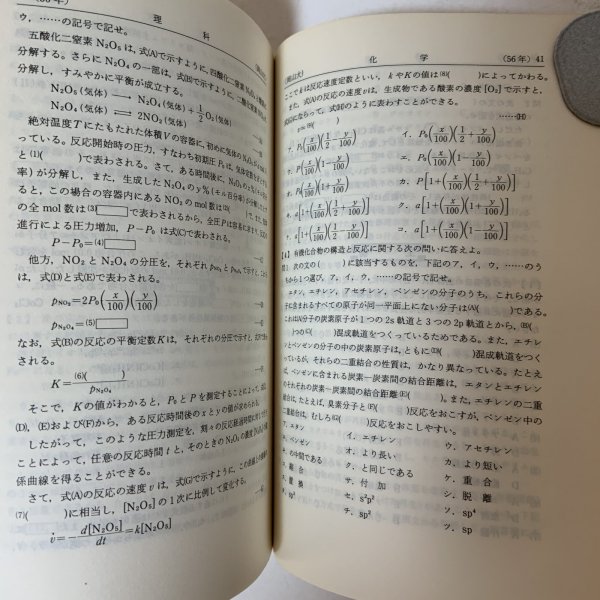 理　科
ウ，……の記号で記せ。
五酸化二窒素N₂O₅は，式(A)で示すように，四酸化二窒素N₂O₄
分解する。さらにN₂O₄の一部は，式(B)で示すように，二酸化窒素
分解し，すみやかに平衡が成立する。
N₂O₅（気体） ⟶ N₂O₄（気体）＋1/2 O₂（気体）
N₂O₄（気体） ⇄ 2NO₂（気体）
絶対温度Tにたもたれた体積Vの容器に，初めに気体のN₂O₅
っている。反応開始時の圧力，すなわち初期圧P₀は，
と(1)(　　　)で表わされる。さて，ある時間後に，N₂O₅のx%
率）が分解し，また，生成したN₂O₄のy%（モル百分率）が分解
ると，この場合の容器内にあるNO₂のmol数は(2)(　　　)
の全mol数は(3)□で表わされるから，全圧Pは
進行による圧力増加，P−P₀は式(C)で表わされる。
P−P₀=(4)□
他方，NO₂とN₂O₄の分圧を，それぞれ
は，式(D)と式(E)で表わされる。
pNO₂=2P₀(x/100)(y/100)
pN₂O₄=(5)□
なお，式(B)の反応の平衡定数Kは，それぞれの分圧で示すと，
K=(6)(　　　)/pN₂O₄
そこで，Kの値がわかると，P₀とPを測定することによって，
(D)，(E)および(F)から，ある反応時間後のxとyの値が求められる。
したがって，このような圧力測定を，刻々の反応経過時間に
ことによって，任意の反応時間tと，そのときのN₂O₅の濃度
係曲線を得ることができる。
さて，式(A)の反応の速度vは，式(G)で示すように，この曲線上の
(7)(　　　)に相当し，[N₂O₅]の1次に比例して変化する。
v=−d[N₂O₅]/dt=k[N₂O₅]
（岡山大）　化　学　（56年）41
ここでkは反応速度定数といい，kやKの値は(8)(　　　)によってかわる。
また，式(A)の反応の速度vは，生成物である酸素の濃度[O₂]で示すと，
式(G)にならって，式(H)のように表わすことができる。
v=(9)(　　　)　……(H)
ア．P₀(x/100)(1/2−y/100)　イ．P₀(x/100)(1/2＋y/100)
ウ．P₀(x/100)(1＋y/100)　エ．P₀(x/100)(1−y/100)
オ．　カ．P[1＋(x/100)(1/2＋y/100)]
キ．a[1＋(x/100)(1/2＋y/100)]　ク．a[1＋(x/100)(1＋y/100)]
ケ．a[1＋(x/100)(1/2−y/100)]　コ．a[1＋(x/100)(1−y/100)]
【4】有機化合物の構造と反応に関する次の問いに答えよ。
問1　次の文の(　　　)に該当するものを，下記のア，イ，ウ，……のう
ちから1つ選び，ア，イ，ウ，……の記号で記せ。
エタン，エチレン，アセチレン，ベンゼンの分子のうち，これらの分
子に含まれるすべての原子が同一平面上にない分子は(A)(　　　)である。
これは分子の炭素原子が1つの2s軌道と3つの2p軌道とから，(B)(　　　)
つの(C)(　　　)混成軌道をつくっているためである。また，エチレ
ンとベンゼンの分子の中の炭素原子は，ともに(D)(　　　)混成軌道をつく
っているが，それらの二重結合の性質は，かなり異なっている。たとえ
ば，ベンゼンに含まれる炭素—炭素間の結合距離は，エタンとエチレン
のそれぞれの炭素—炭素間の結合距離(E)(　　　)。また，エチレンの二重
結合は，たとえば，臭素分子と(F)(　　　)反応をおこすが，ベンゼン中の
二重結合は，むしろ(G)(　　　)反応をおこしやすい。
ア．エタン　イ．エチレン　ウ．アセチレン
エ．ベンゼン　オ．より長い　カ．より短い
キ．の中間である　ク．と同じである　ケ．重　合
コ．縮　合　サ．付　加　シ．脱　離
ス．置　換　セ．s²p²　ソ．sp⁴
タ．sp³　チ．sp²　ツ．sp